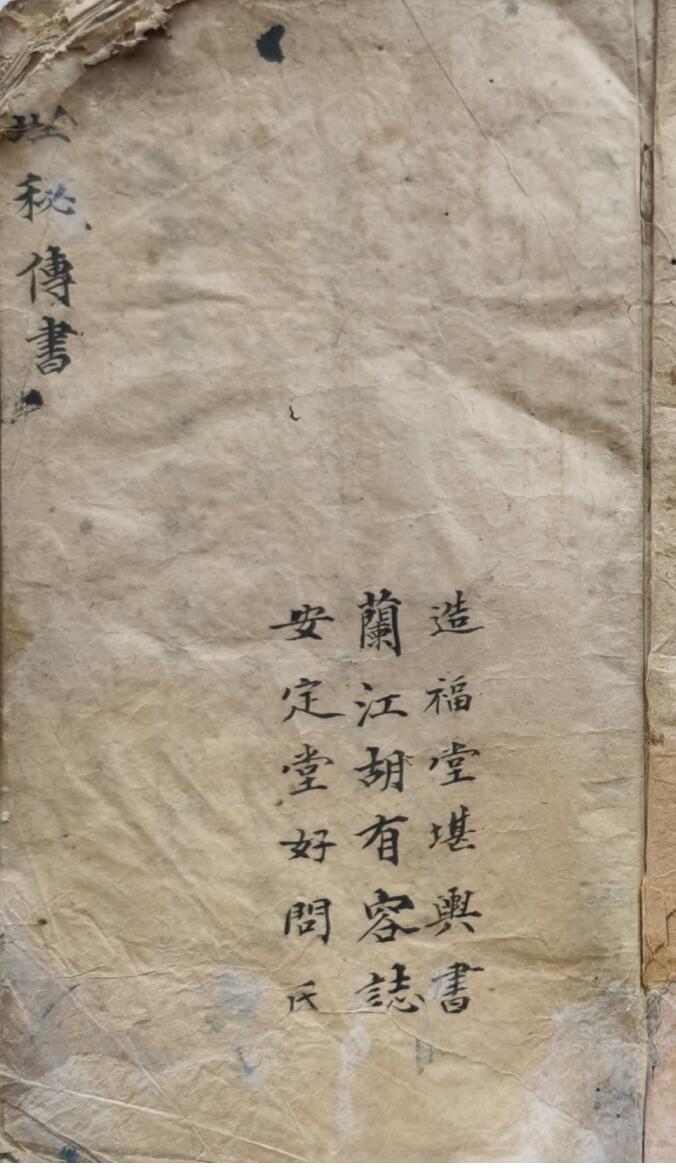 造福堂堪輿書
蘭江胡有容誌
安定堂好問氏
秘傳書